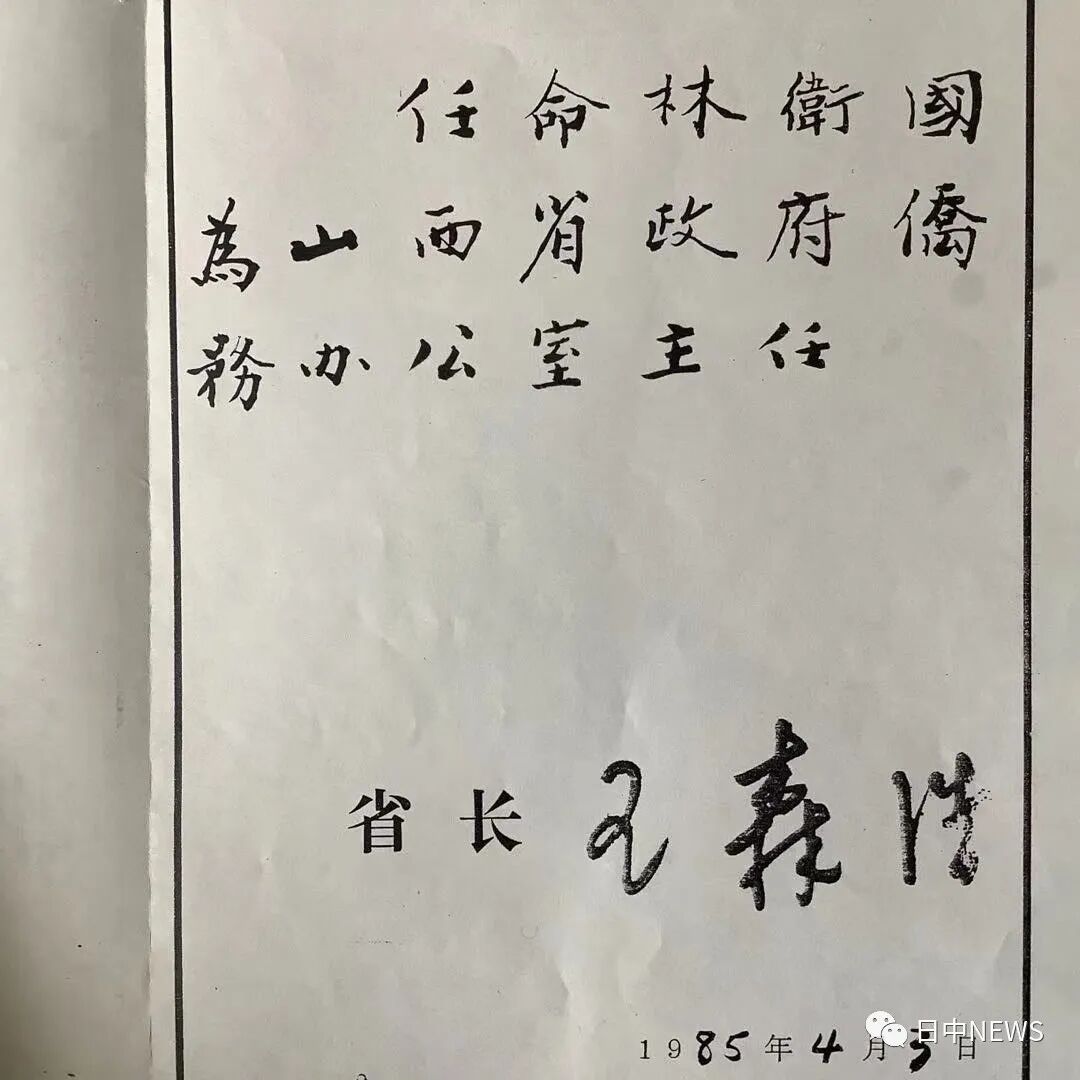 任命林衛國
為山西省政府僑
務办公室主任
省长 王森浩
1985年4月3日
日中NEWS